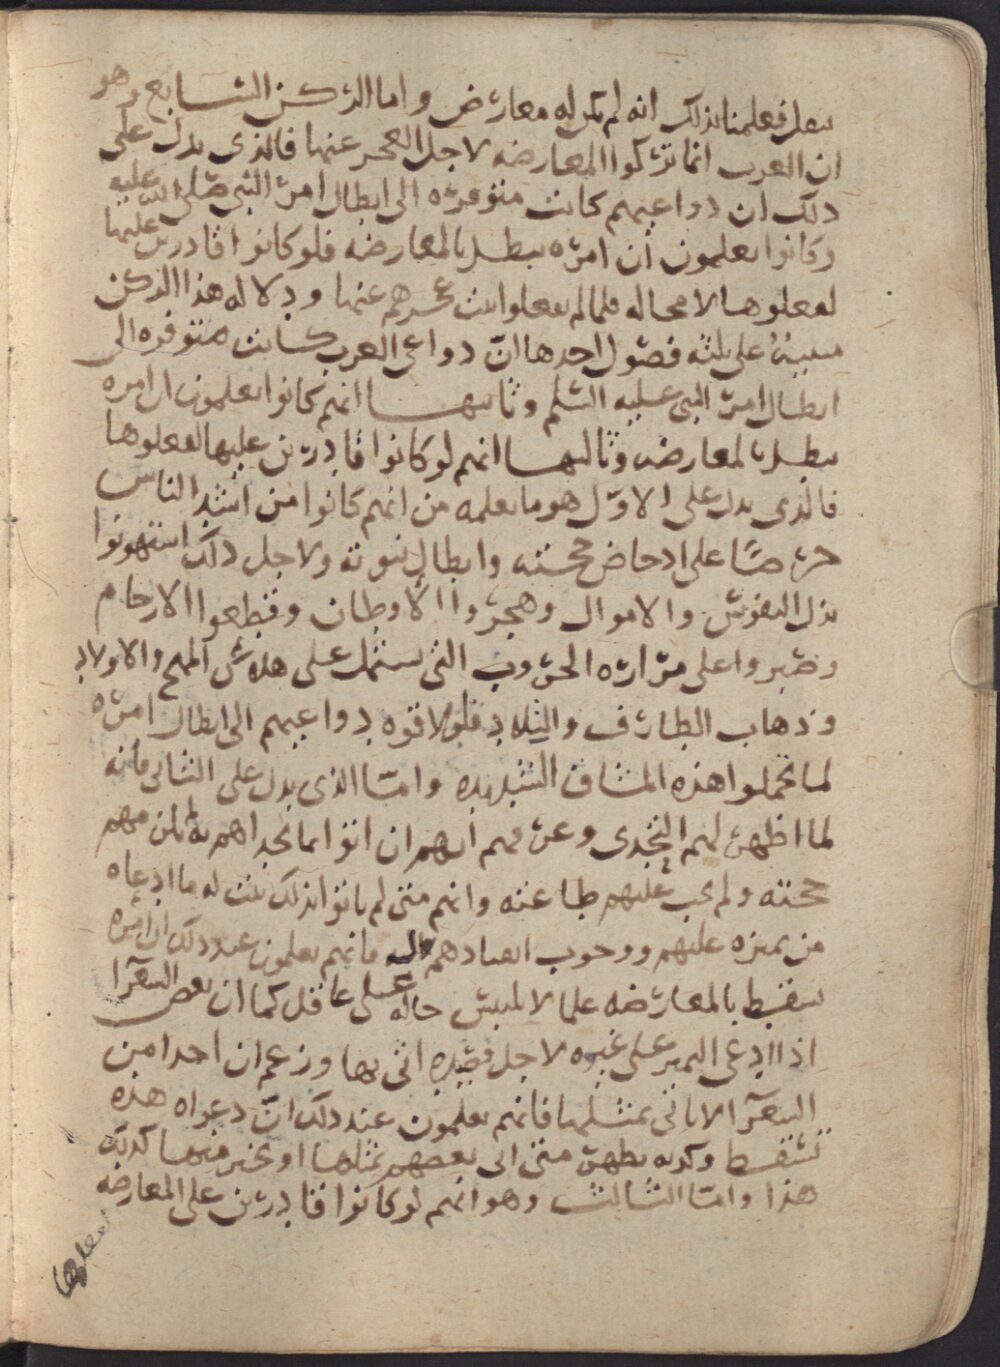 ينقل فعلمنا بذلك انه لم يكن له معارض واما الركن السابع وهو
ان العرب انما تركوا المعارضه لاجل العجز عنها فالذى يدل على
ذلك ان دواعيهم كانت متوفره الى ابطال امر النبى صلى الله عليه
وكانوا يعلمون ان امره يبطل بالمعارضه فلو كانوا قادرين عليها
لفعلوها لا محاله فلما لم يفعلوا ثبت عجزهم عنها ودلاله هذا الركن
مبنية على ثلثه فصول احدها انّ دواعى العرب كانت متوفره الى
ابطال امر النبى عليه السلم وثانيها انهم كانوا يعلمون ان امره
يبطل بالمعارضه وثالثها انهم لو كانوا قادرين عليها لفعلوها
فالذى يدل على الاوّل هو ما نعلمه من انهم كانوا من اشد الناس
حرصًا على ادحاض حجته وابطال نبوته ولاجل ذلك استهونوا
بذل النفوس والاموال وهجروا الاوطان وقطعوا الارحام
وصبروا على مراره الحروب التى تشتمل على المهج والاولاد
وذهاب الطارف والتلاد فلولا قوه دواعيهم الى ابطال امره
لما تحملوا هذه المشاق الشديده وامّا الذى يدل على الثانى فانه
لما اظهر لهم التحدى وعرفهم انهم ان اتوا بما تحداهم به لم تلزمهم
حجته ولم يجب عليهم طاعته وانهم متى لم ياتوا بذلك ثبت له ما ادعاه
من تميزه عليهم ووجوب انقيادهم له فانهم يعلمون عند ذلك ان امره
يسقط بالمعارضه علما لا يلتبس حاله على عاقل كما ان بعض الشعرا
اذا ادعى التميز على غيره لاجل قصيده اتى بها وزعم ان احدا من
الشعرآ لا ياتى بمثلها فانهم يعلمون عند ذلك انّ دعواه هذه
تسقط وكذبه يظهر متى اتى بعضهم بمثلها او بخير منها كذلك
هذا وامّا الثالث وهو انهم لو كانوا قادرين على المعارضه
لفعلوها